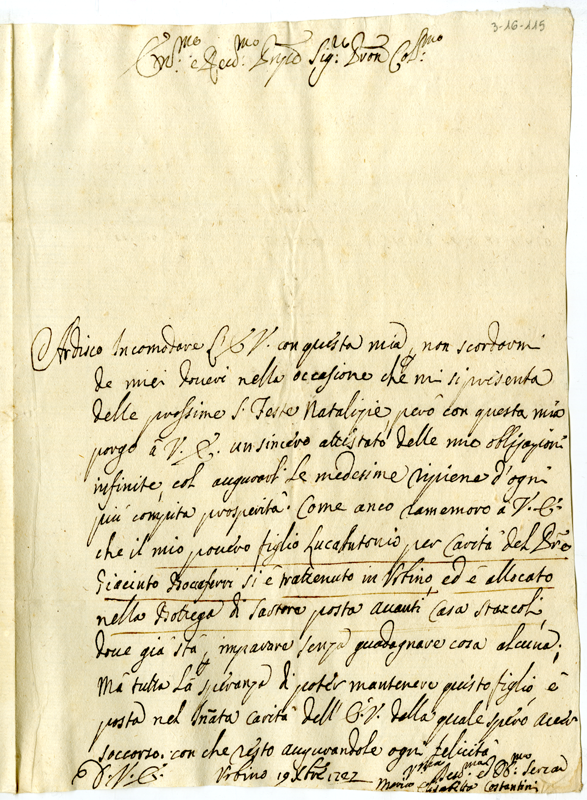 3-16-115
Em.mo e Rev.mo Prnpe Sig.re Pron Col.mo
Ardisco Incomodare L'E V. con questa mia p non scordarmi
de miei doveri nella occasione che mi si presenta
delle prossime S. Feste Natalizie, però con questa mia
porgo à V. E. un sincero attestato delle mie obligazioni
infinite, col augurarli le medesime ripiene d'ogni
più compita prosperità. Come anco ramemoro à V. E.
che il mio povero figlio Lucantonio per Carità del
Giacinto si è trattenuto in Urbino, ed è allocato
nella Botega di Sartore posta avanti Casa Staccoli,
dove già stà p imparare senza guadagnare cosa alcuna;
Mà tutta la speranza di poter mantenere questo figlio è
posta nel Inata carità dell'E.V. dalla quale spero aver
soccorso: con che resto augurandole ogni felicità
D. V. E. Urbino 19 Xbre
Um.a Dev.ma e Ob.mo Serva
Maria Elisabetta Costantini